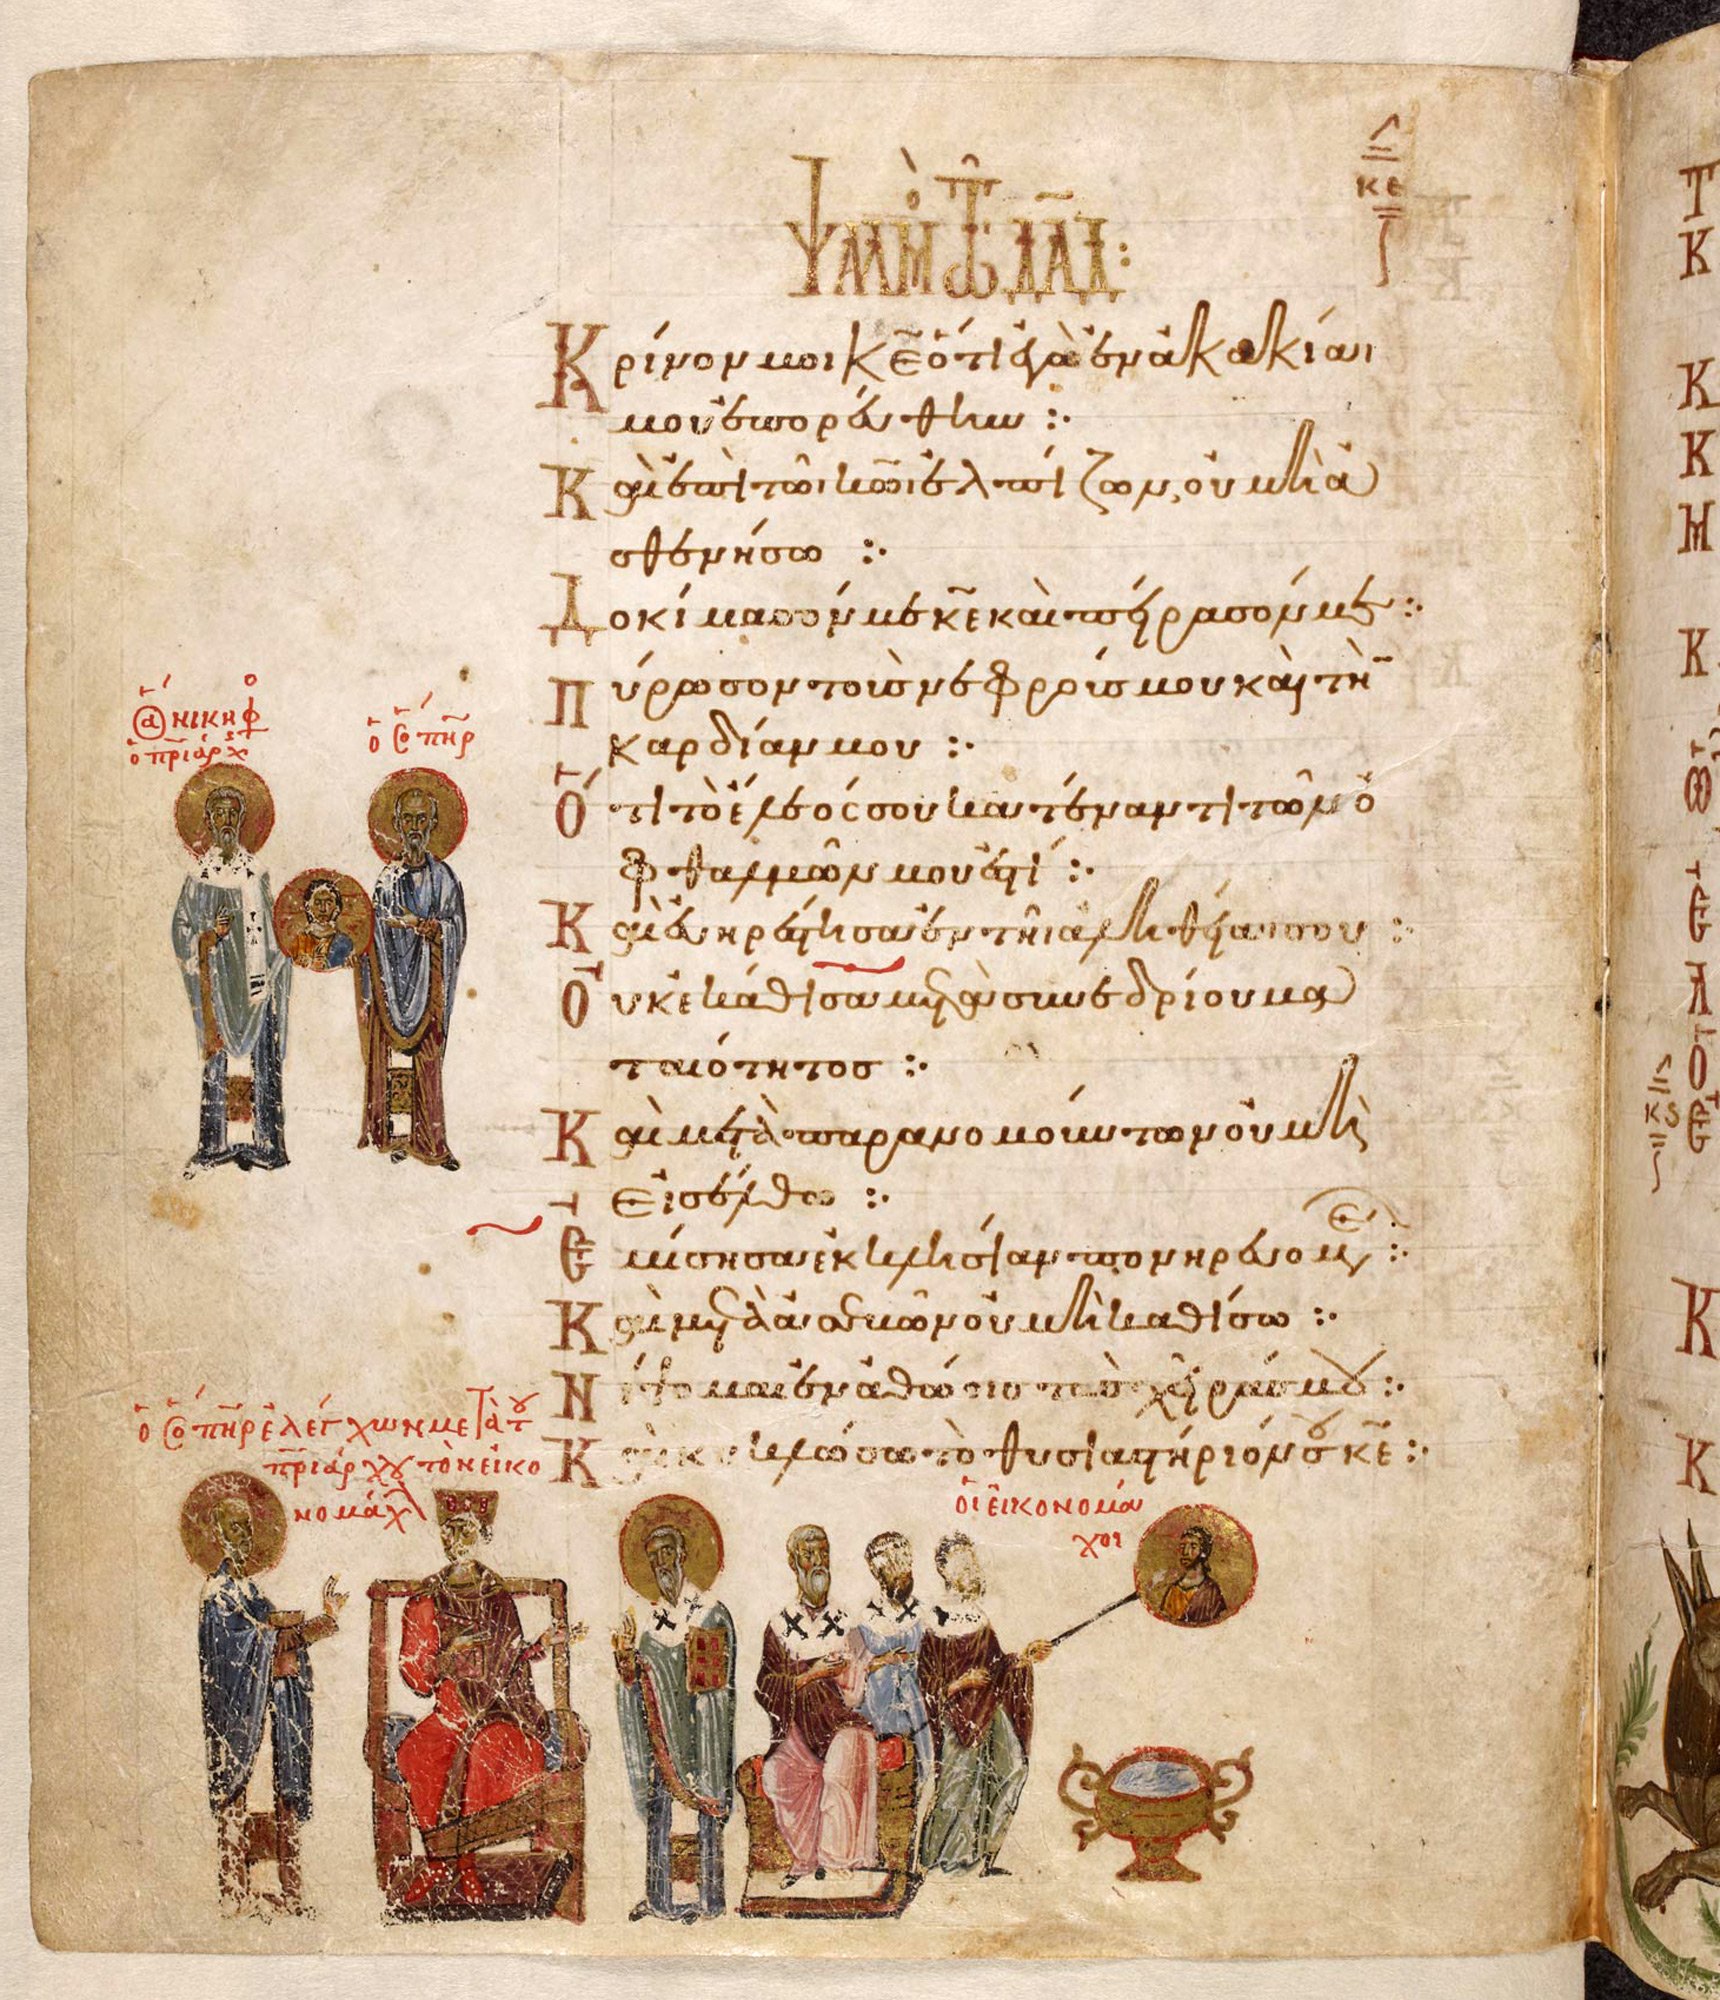 ΚΕ
ΨΑΛΜῸC Τῶ ΔΑΔ:
Κρίνόν μοι κ̅ε̅ ὅτι ἐγὼ ἐν ἀκακίαι
μου ἐπορεύθην :·
Καὶ ἐπὶ τῶι κ̅ω̅ι ἐλπίζων, οὐ μὴ ἀ
σθενήσω :·
Δοκίμασόν με κ̅ε̅ καὶ πείρασόν με :·
Πύρωσον τοὺς νεφρούς μου καὶ τὴν
καρδίαν μου :·
Ὅτι τὸ ἔλεός σου κατέναντι τῶν ὀ
φθαλμῶν μου ἐστί :·
Καὶ εὐηρέστησα ἐν τῆι ἀληθείαι σου :·
Οὐκ ἐκάθισα μετὰ συνεδρίου μα
ταιότητος :·
Καὶ μετὰ παρανομούντων οὐ μὴ
εἰσέλθω :·
Ἐμίσησα ἐκκλησίαν πονηρευομέ :·
Καὶ μετὰ ἀσεβῶν οὐ μὴ καθίσω :·
Νίψομαι ἐν ἀθώοις τὰς χεῖράς μου :·
Καὶ κυκλώσω τὸ θυσιαστήριόν σου κ̅ε̅ :·
ὁ ἅ ΝΙΚΗΦ
ὁ π̅ρ̅ιάρχ
ὁ ὅσ π̅η̅ρ
ὁ ὅσ π̅η̅ρ ἐλέγχων μετὰ τοῦ
π̅ρ̅ιάρχου τὸν εἰκο
νομάχ
οἱ εἰκονομά
χοι
Κϛ